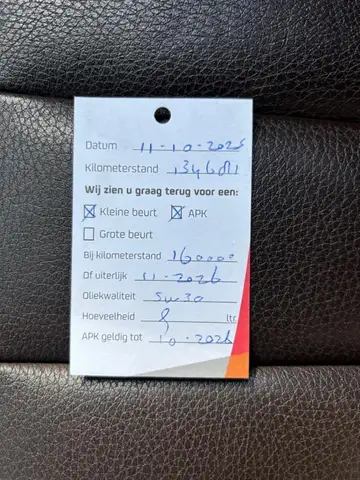 Datum 11-10-2025
Kilometerstand 134681
Wij zien u graag terug voor een:
Kleine beurt APK
Grote beurt
Bij kilometerstand 160000
Of uiterlijk 11-2026
Oliekwaliteit 5w30
Hoeveelheid 8 ltr.
APK geldig tot 10.2026